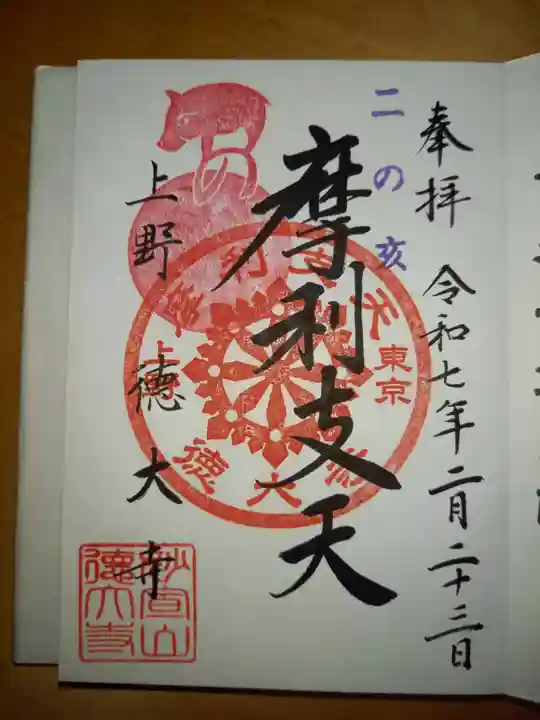 奉拝 令和七年二月二十三日
二の亥
摩利支天
上野 徳大寺
東京
妙宣山
徳大寺